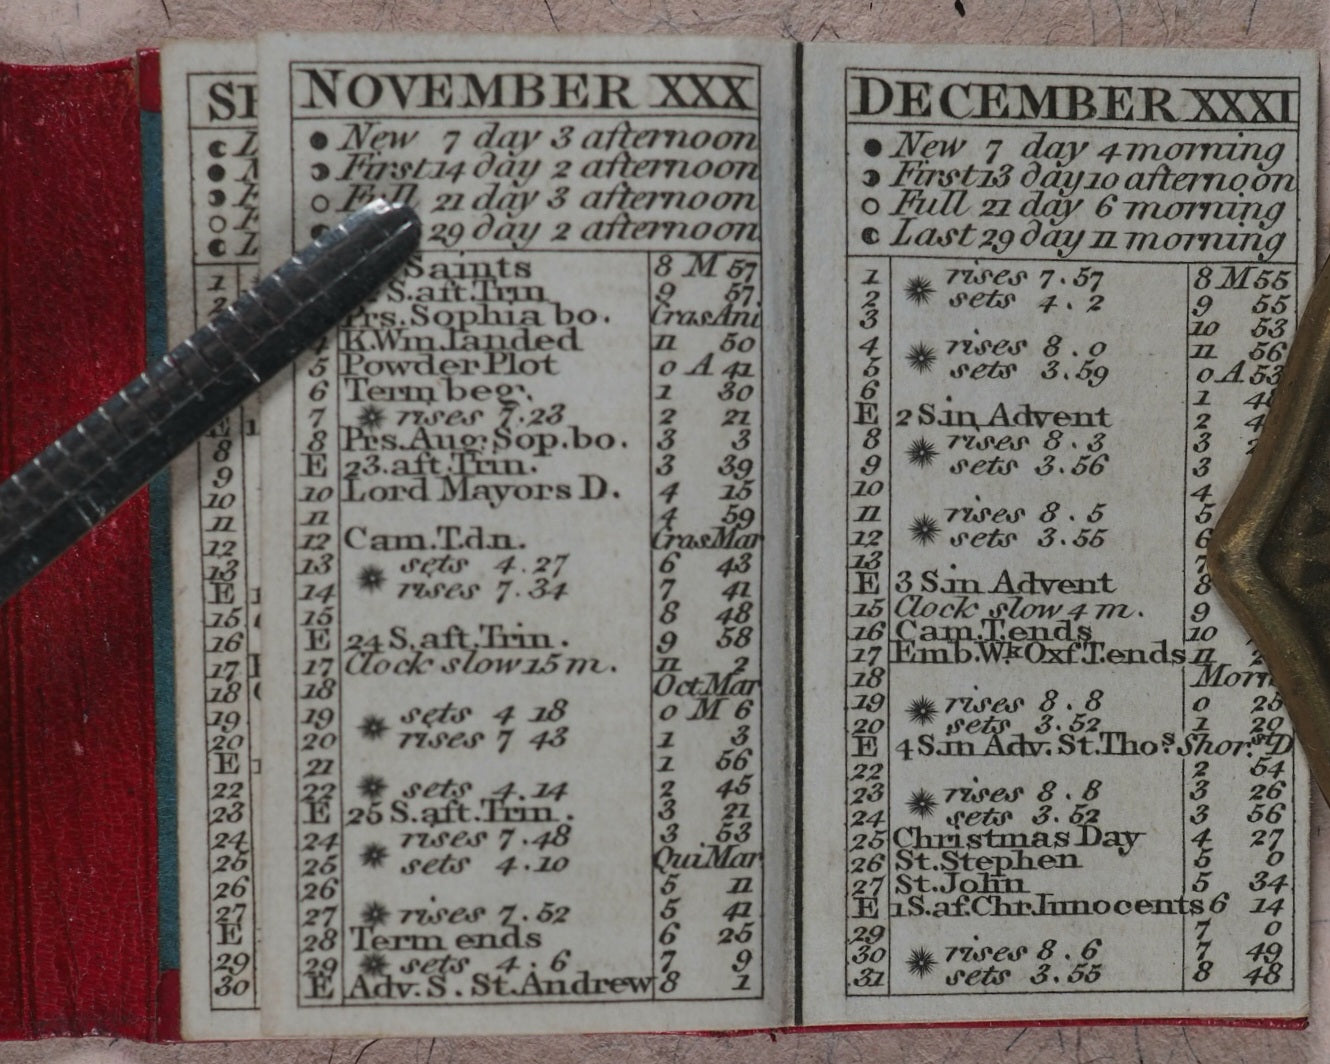 NOVEMBER XXX
New 7 day 3 afternoon
First 14 day 2 afternoon
Full 21 day 3 afternoon
29 day 2 afternoon
Saints 8 M 57
S.aft.Trin 9 57
Prs.Sophia bo. Gras Ani
K.Wm.landed 11 50
5 Powder Plot 0 A 41
6 Term beg. 1 30
7 rises 7.23 2 21
8 Prs.Aug:Sop.bo. 3 3
E 23.aft.Trin. 3 39
10 Lord Mayors D. 4 15
11 4 59
12 Cam.T.dn. Gras Mar
13 sets 4.27 6 43
14 rises 7.34 7 41
15 8 48
E 24 S.aft.Trin. 9 58
17 Clock slow 15 m. 11 2
18 Oct Mar
19 sets 4 18 0 M 6
20 rises 7 43 1 3
21 1 56
22 sets 4.14 2 45
E 25 S.aft.Trin. 3 21
24 rises 7.48 3 53
25 sets 4.10 Qui Mar
26 5 11
27 rises 7.52 5 41
28 Term ends 6 25
29 sets 4.6 7 9
E Adv.S.St.Andrew 8 1
DECEMBER XXXI
New 7 day 4 morning
First 13 day 10 afternoon
Full 21 day 6 morning
Last 29 day 11 morning
1 rises 7.57 8 M 55
2 sets 4.2 9 55
3 10 53
4 rises 8.0 11 56
5 sets 3.59 0 A 53
6 1
E 2 S.in Advent 2
8 rises 8.3 3
9 sets 3.56 3
10 4
11 rises 8.5 5
12 sets 3.55 6
13 7
E 3 S.in Advent 8
15 Clock slow 4 m. 9
16 Cam.T.ends 10
17 Emb.Wk Oxf.T.ends 11
18
19 rises 8.8 0 25
20 sets 3.52 1 29
E 4 S.in Adv.St.Thos. Shor.st D
22 2 54
23 rises 8.8 3 26
24 sets 3.52 3 56
25 Christmas Day 4 27
26 St.Stephen 5 0
27 St.John 5 34
E 1 S.af.Chr.Innocents 6 14
29 7 0
30 rises 8.6 7 49
31 sets 3.55 8 48
1
2
3
8
9
10
11
12
13
E
15
16
17
18
19
20
E
22
23
24
25
26
27
E
29
30